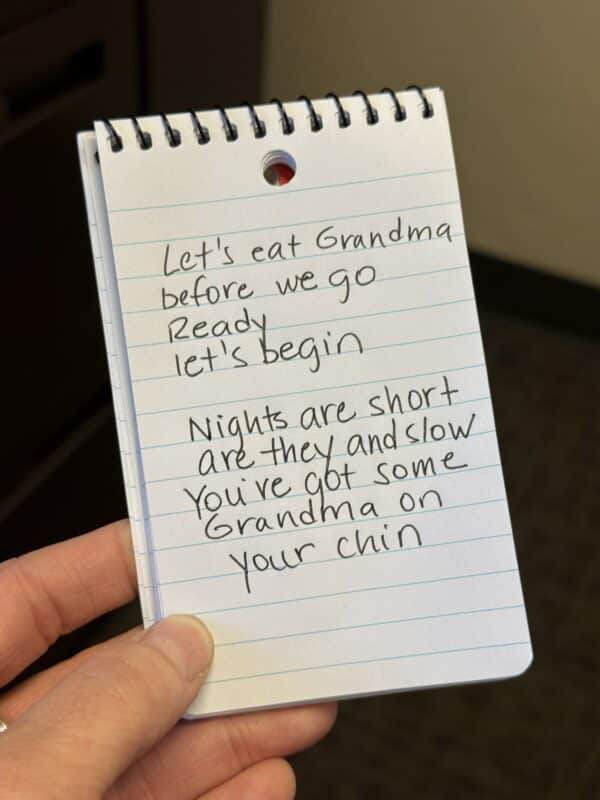 Let's eat Grandma
before we go
Ready
let's begin
Nights are short
are they and slow
You've got some
Grandma on
your chin